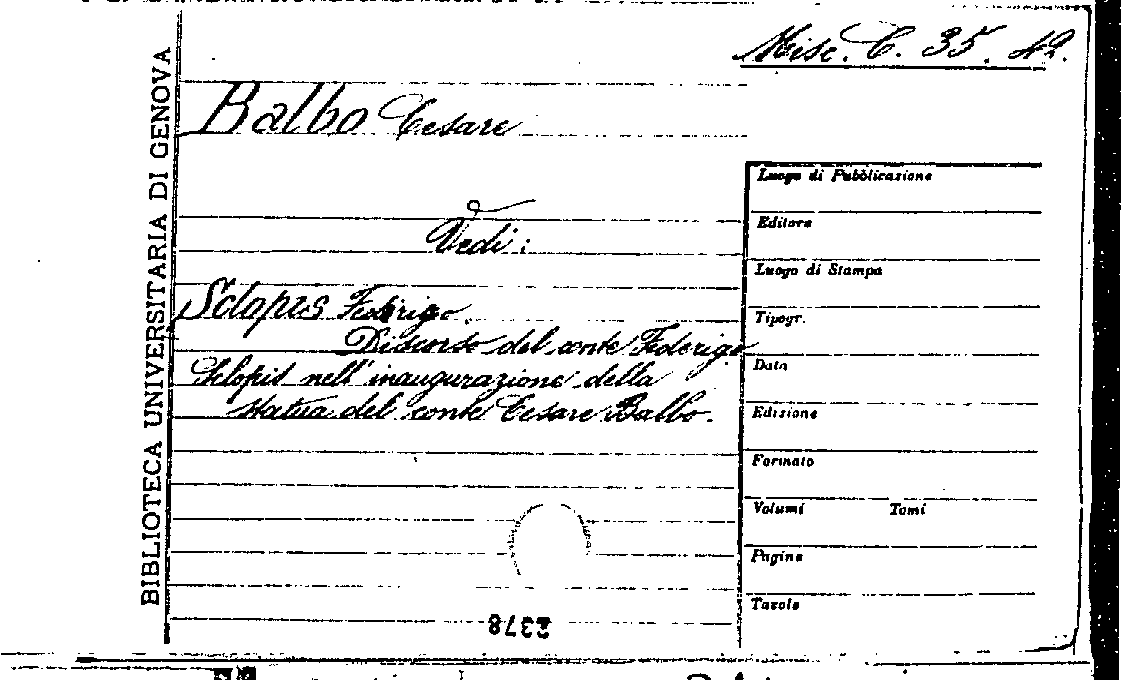 Misc. C. 35. 42.
BIBLIOTECA UNIVERSITARIA DI GENOVA
Balbo Cesare
Vedi:
Sclopis Federigo.
Discorso del conte Federigo
Sclopis nell'inaugurazione della
statua del conte Cesare Balbo.
Luogo di Pubblicazione
Editore
Luogo di Stampa
Tipogr.
Data
Edizione
Formato
Volumi Tomi
Pagine
Tavole
2378